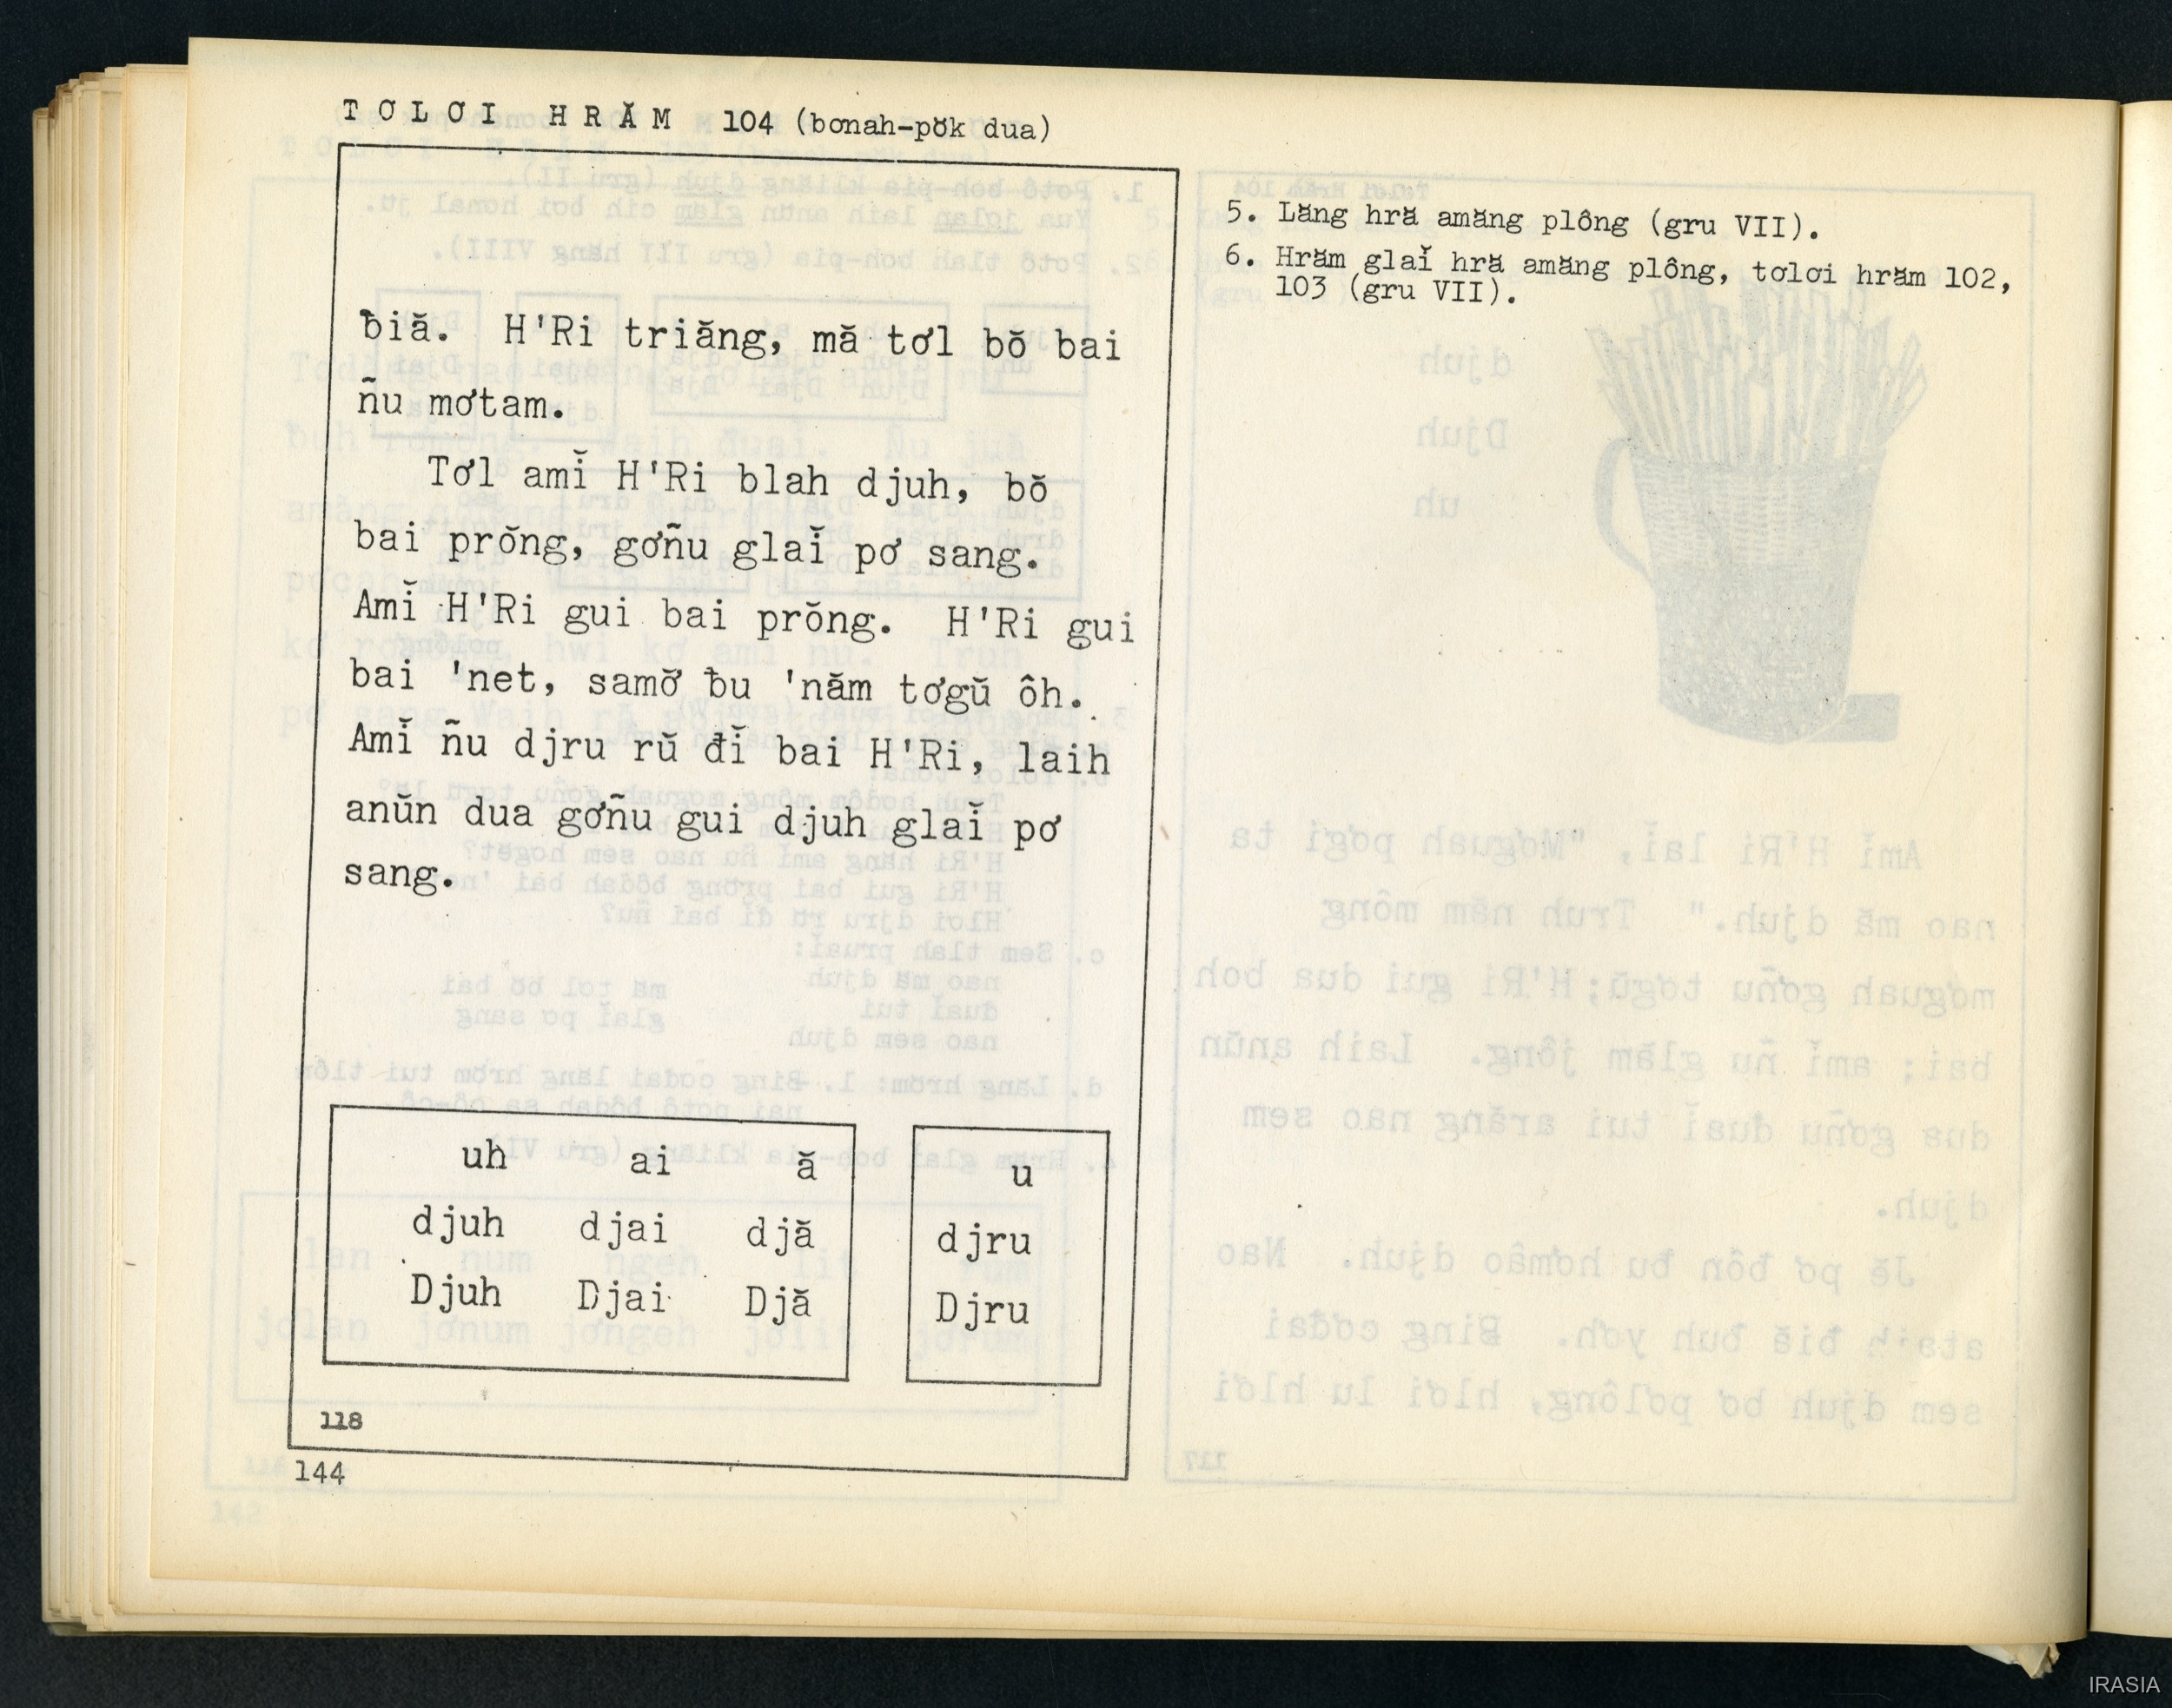 TƠLƠI HRĂM 104 (bơnah-pŏk dua)
ƀiă. H'Ri triăng, mă tơl bŏ bai
ñu mơtam.
Tơl amĭ H'Ri blah djuh, bŏ
bai prŏng, gơñu glaĭ pơ sang.
Amĭ H'Ri gui bai prŏng. H'Ri gui
bai 'net, samơ̆ ƀu 'năm tơgŭ ôh.
Amĭ ñu djru rŭ đĭ bai H'Ri, laih
anŭn dua gơñu gui djuh glaĭ pơ
sang.
uh ai ă
djuh djai djă
Djuh Djai Djă
u
djru
Djru
118
144
5. Lăng hră amăng plông (gru VII).
6. Hrăm glaĭ hră amăng plông, tơlơi hrăm 102,
103 (gru VII).
IRASIA